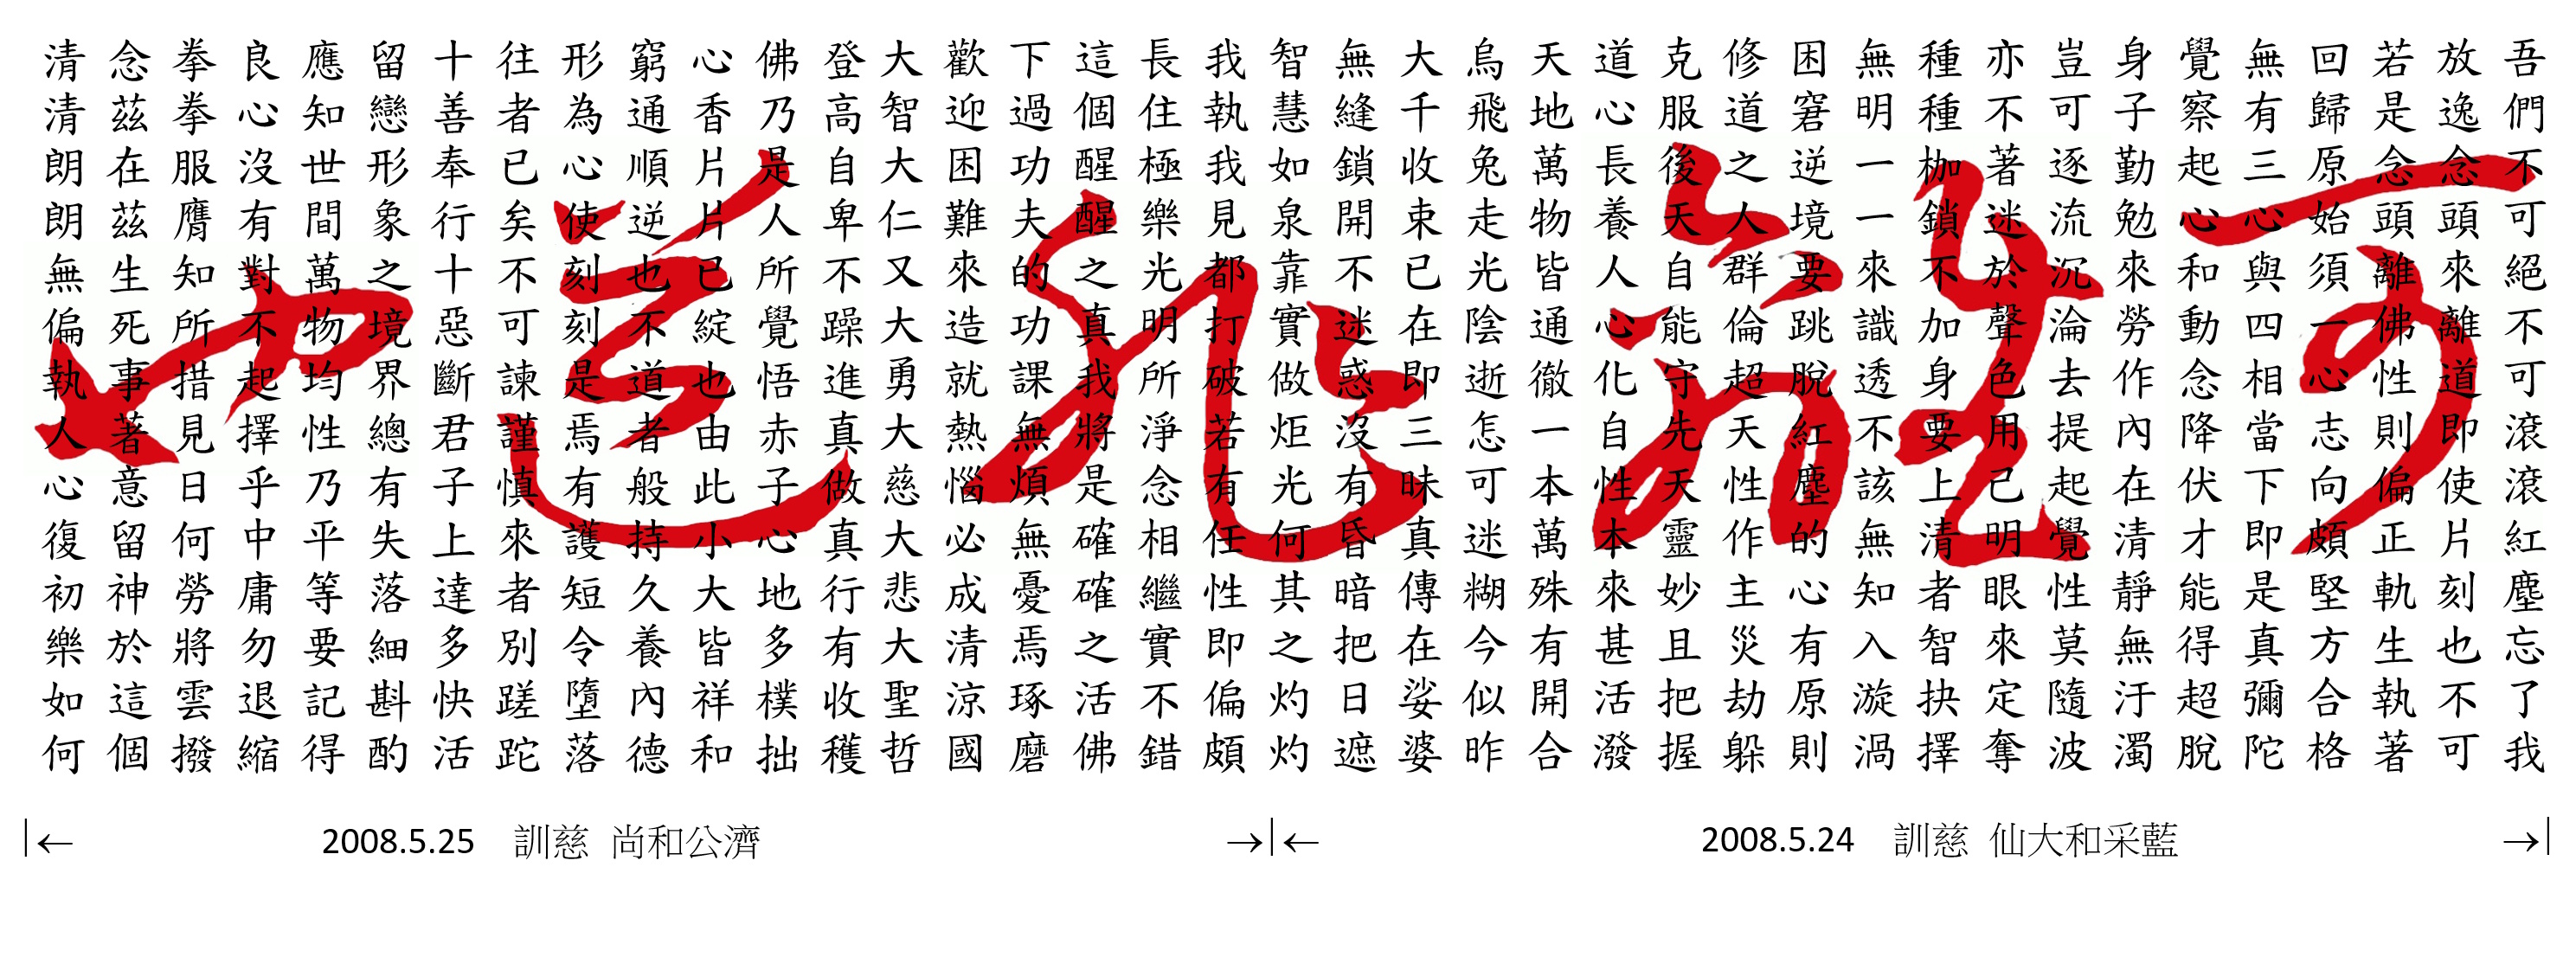 可離非道也
吾們不可絕不可滾滾紅塵忘了我
放逸念頭來離道即使片刻也不可
若是念頭離佛性則偏正軌生執著
回歸原始須一心志向頗堅方合格
無有三心與四相當下即是真彌陀
覺察起心和動念降伏才能得超脫
身子勤勉來勞作內在清靜無汙濁
豈可逐流沉淪去提起覺性莫隨波
亦不著迷於聲色用己明眼來定奪
種種枷鎖不加身要上清者智抉擇
無明一一來識透不該無知入漩渦
困窘逆境要跳脫紅塵的心有原則
修道之人群倫超天性作主災劫躲
克服後天自能守先天靈妙且把握
道心長養人心化自性本來甚活潑
天地萬物皆通徹一本萬殊有開合
烏飛兔走光陰逝怎可迷糊今似昨
大千收束已在即三昧真傳在娑婆
無縫鎖開不迷惑沒有昏暗把日遮
智慧如泉靠實做炬光何其之灼灼
我執我見都打破若有任性即偏頗
長住極樂光明所淨念相繼實不錯
這個醒醒之真我將是確確之活佛
下過功夫的功課無煩無憂焉琢磨
歡迎困難來造就熱惱必成清涼國
大智大仁又大勇大慈大悲大聖哲
登高自卑不躁進真做真行有收穫
佛乃是人所覺悟赤子心地多樸拙
心香片片已綻也由此小大皆祥和
窮通順逆也不道者般持久養內德
形為心使刻刻是焉有護短令墮落
往者已矣不可諫謹慎來者別蹉跎
十善奉行十惡斷君子上達多快活
留戀形象之境界總有失落細斟酌
應知世間萬物均性乃平等要記得
良心沒有對不起擇乎中庸勿退縮
拳拳服膺知所措見日何勞將雲撥
念茲在茲生死事著意留神於這個
清清朗朗無偏執人心復初樂如何
2008.5.24 訓慈 仙大和采藍
2008.5.25 訓慈 尚和公濟